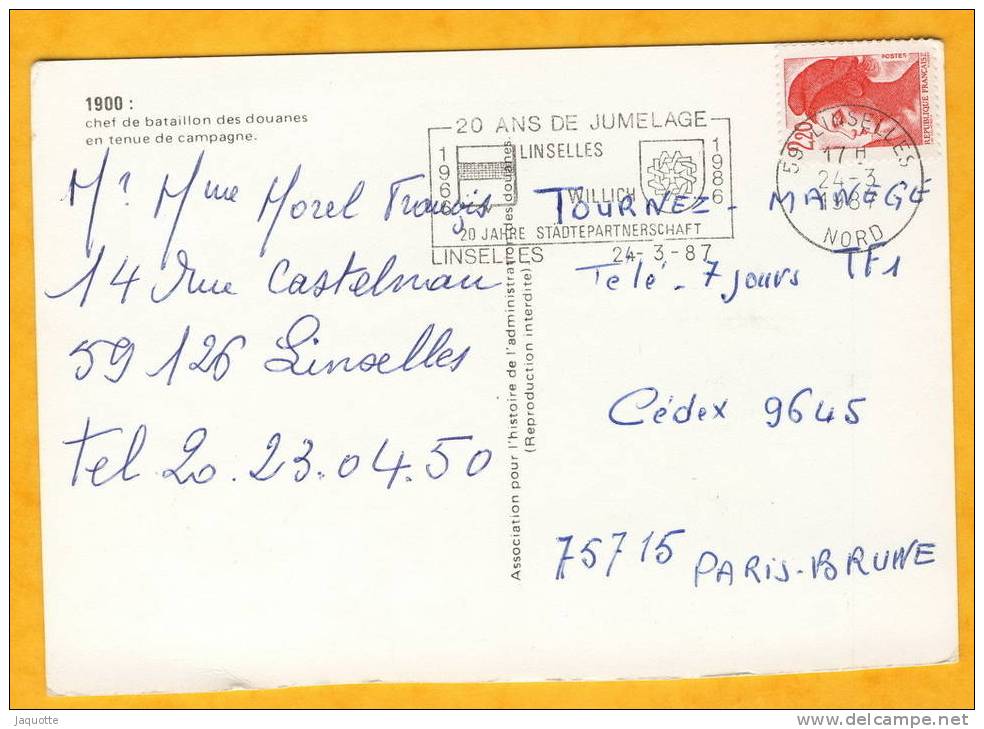 1900 :
chef de bataillon des douanes
en tenue de campagne.
20 ANS DE JUMELAGE
1966
LINSELLES
WILLICH
1986
20 JAHRE STÄDTEPARTNERSCHAFT
LINSELLES 24-3-87
POSTES
2,20
REPUBLIQUE FRANÇAISE
59 LINSELLES
17 H
24-3
1987
NORD
Mr Mme Morel François
14 rue Castelnau
59 126 Linselles
Tel 20.23.04.50
Association pour l'histoire de l'administration des douanes.
(Reproduction interdite)
TOURNEZ - MANEGE
Télé - 7 jours TF1
Cédex 9645
75715 PARIS-BRUNE
Jaquotte
www.delcampe.net